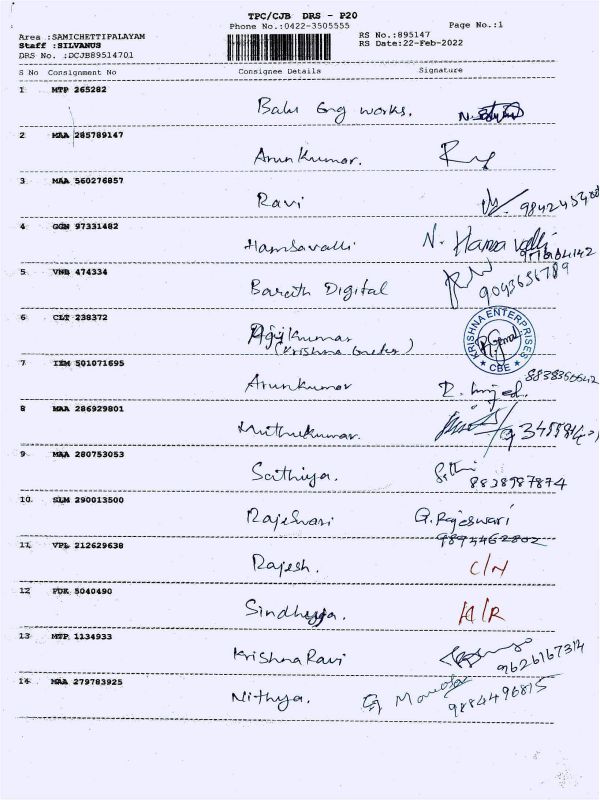 TPC/CJB DRS - P20
Phone No.:0422-3505555
Page No.:1
Area :SAMICHETTIPALAYAM
RS No.:895147
Staff :SILVANUS
RS Date:22-Feb-2022
DRS No. :DCJB89514701
S No Consignment No Consignee Details Signature
1 MTP 265282
Balu Eng works.
2 MAA 285789147
Arunkumar.
3 MAA 560276857
Ravi
4 GGN 97331482
Hamsavalli N. Hamsavalli
5 VNB 474334
Barath Digital
9093656789
6 CLT 238372
Ajikumar
KRISHNA ENTERPRISES
CBE
7 IXM 501071695
Arunkumar
8 MAA 286929801
Muthukumar.
9 MAA 280753053
Sathiya.
8838987874
10 SLM 290013500
Rajeswari G. Rajeswari
9894462802
11 VPL 212629638
Rajesh. C/N
12 PDK 5040490
Sindhuja.
13 MTP 1134933
KrishnaRavi
9626167314
14 MAA 279783925
Nithya.
9884496815